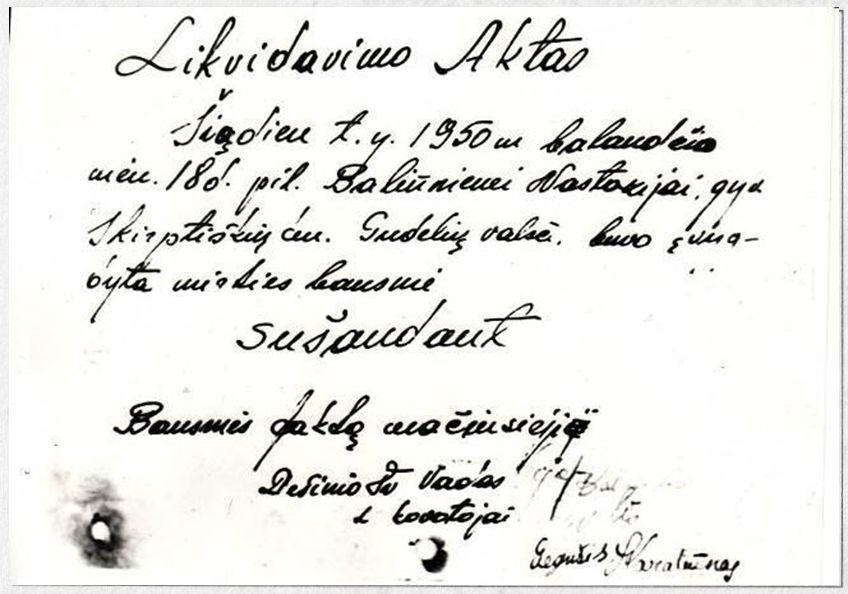 Likvidavimo Aktas
Šiądien t.y. 1950 m balandžio
mėn. 18 d. pil. Baliūnienei Nastazijai, gyv
Skirptiškių km. Gudelių valsč. buvo įvyk-
dyta mirties bausmė
sušaudant
Bausmės faktą mačiusieji
Dešimto Šv Vadas
kovotojai